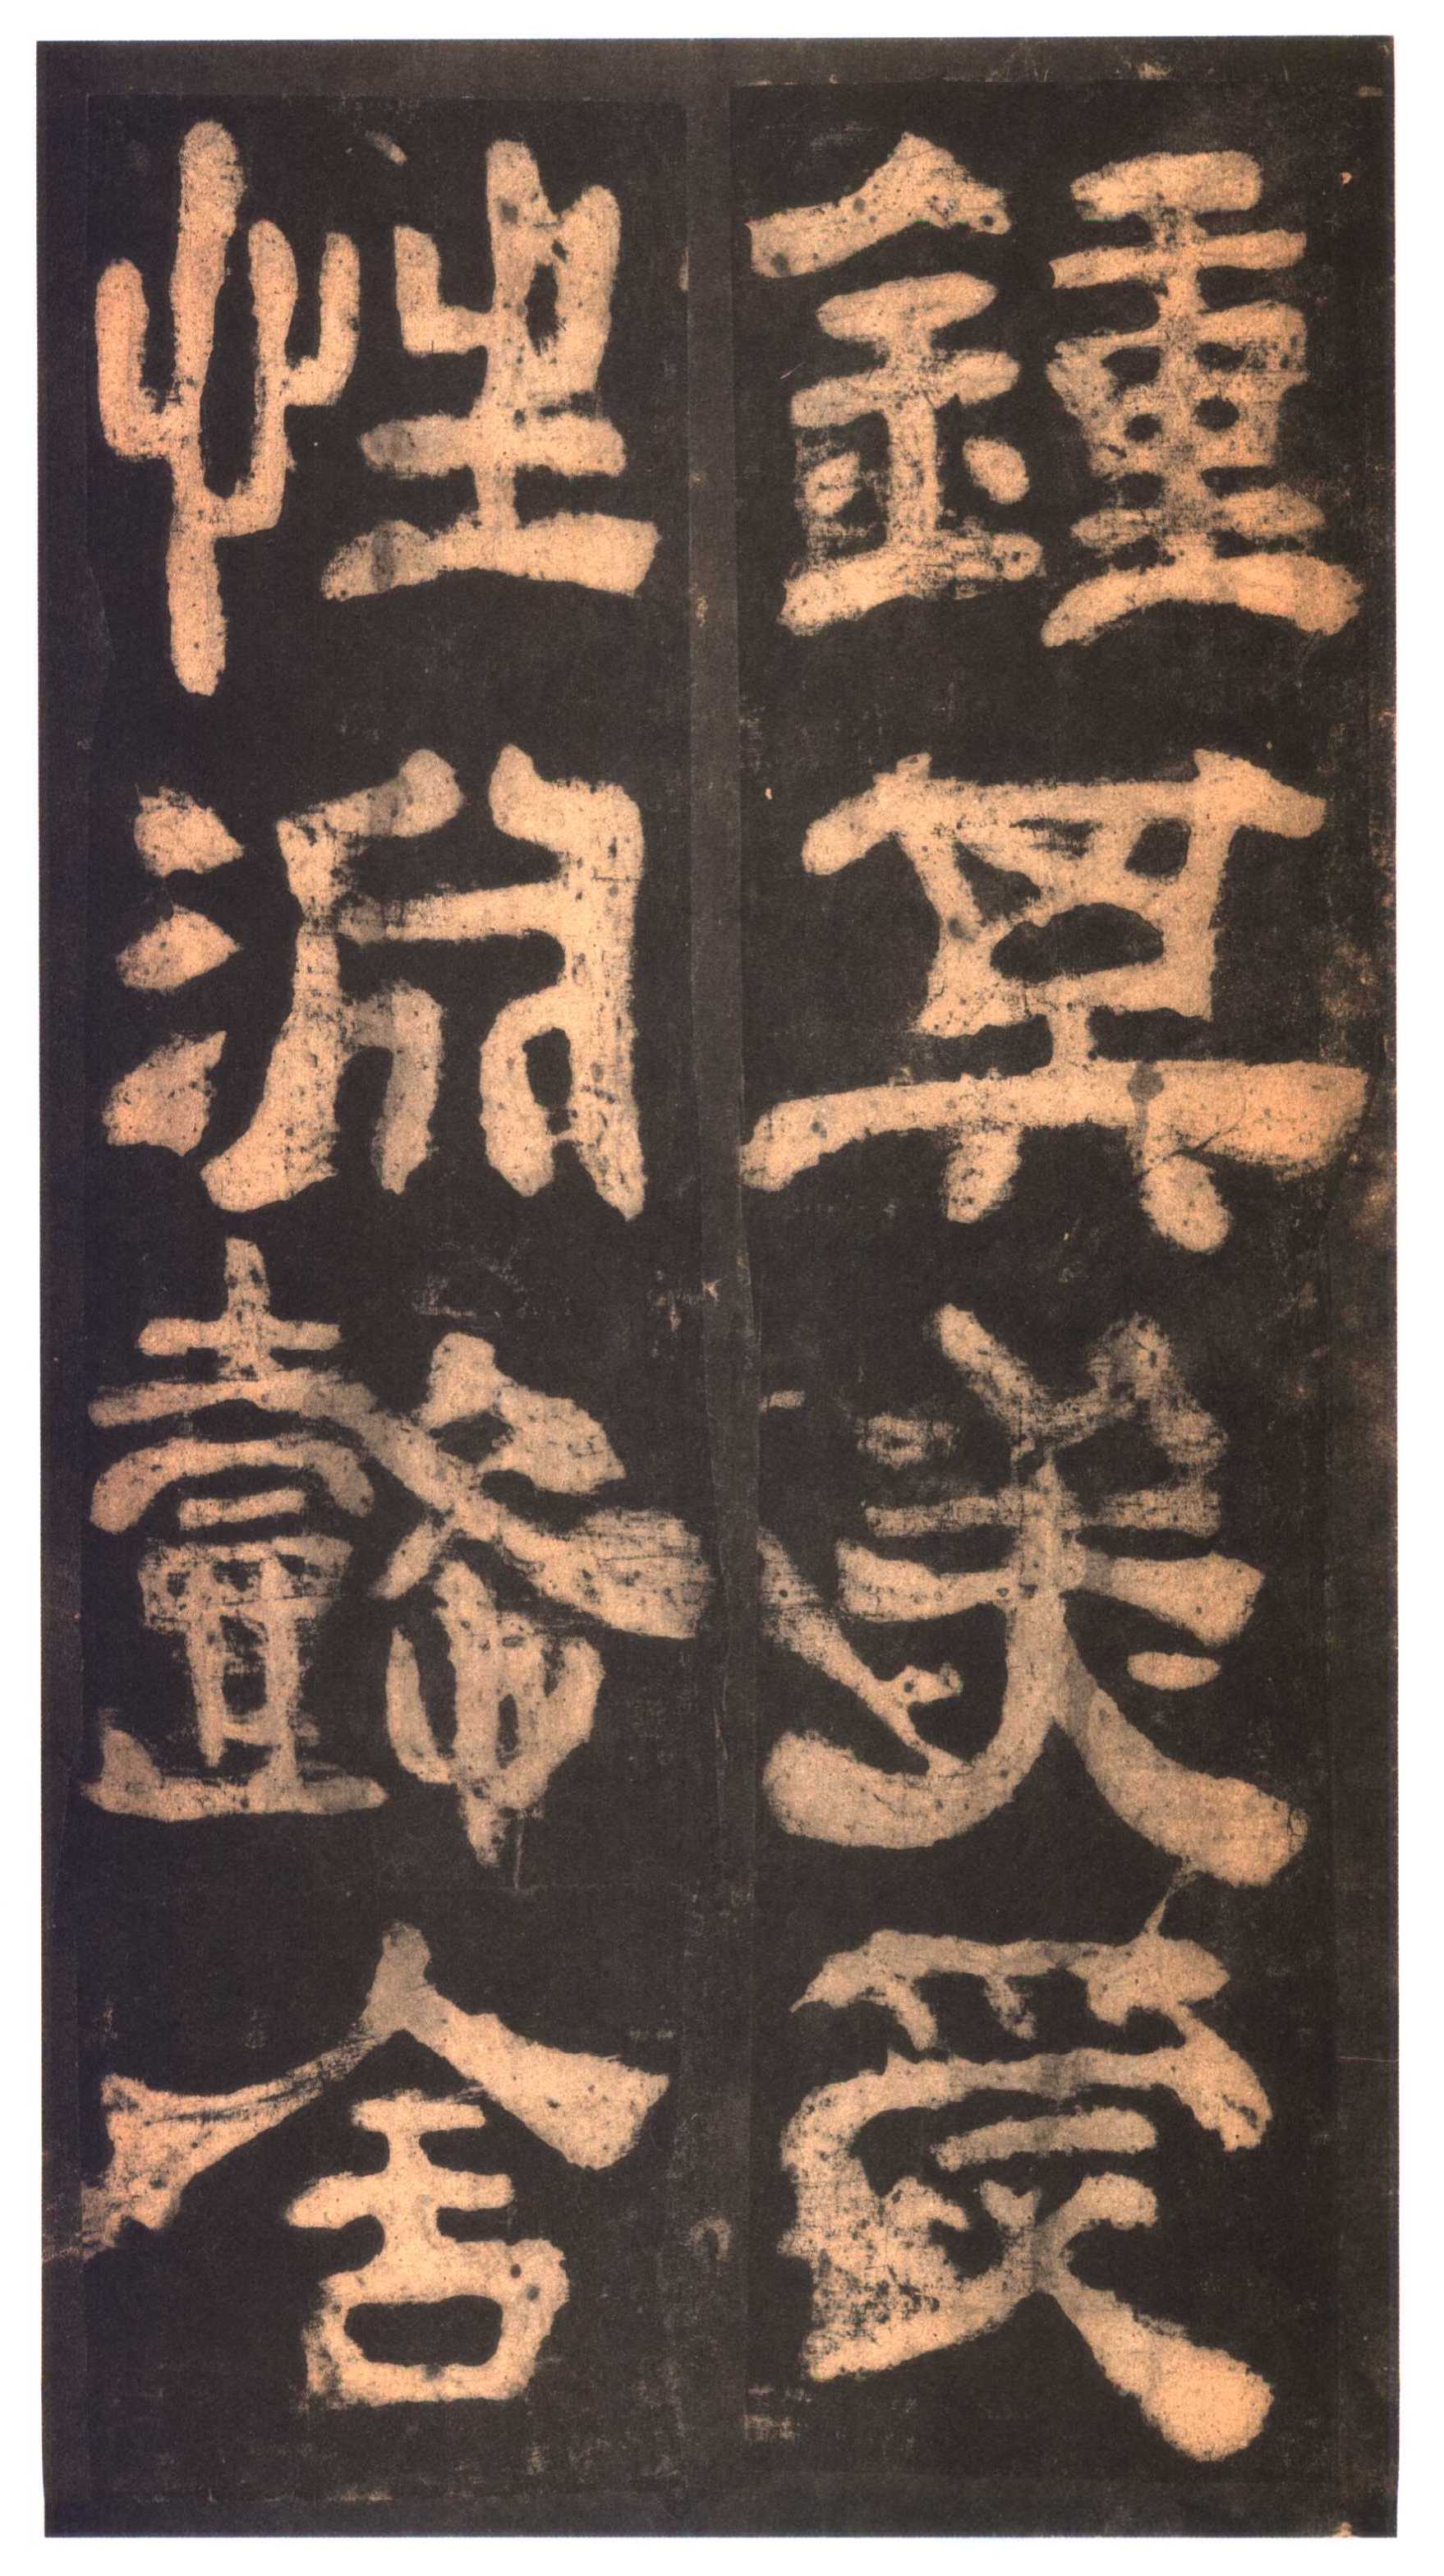 鍾其美受
性淵懿含